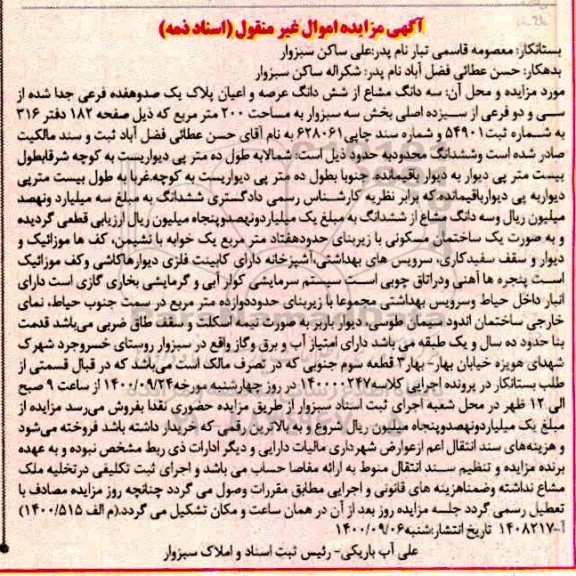 آگهی مزایده اموال غیر منقول (اسناد ذمه)
بستانکار: معصومه قاسمی تبار نام پدر:علی ساکن سبزوار
بدهکار: حسن عطائی فضل آباد نام پدر: شکراله ساکن سبزوار
مورد مزایده و محل آن: سه دانگ مشاع از شش دانگ عرصه و اعیان پلاک یک صدوهفده فرعی جدا شده از
سی و دو فرعی از سیزده اصلی بخش سه سبزوار به مساحت ۲۰۰ متر مربع که ذیل صفحه ۱۸۲ دفتر ۳۱۶
به شماره ثبت ۵۴۹۰۱ و شماره سند چاپی ۶۲۸۰۶۱ به نام آقای حسن عطائی فضل آباد ثبت و سند مالکیت
صادر شده است وششدانگ محدودبه حدود ذیل است: شمالابه طول ده متر پی دیواریست به کوچه شرقابطول
بیست متر پی دیوار به دیوار باقیمانده. جنوبا بطول ده متر پی دیواریست به کوچه.غربا به طول بیست مترپی
دیواربه پی دیوارباقیمانده.که برابر نظریه کارشناس رسمی دادگستری ششدانگ به مبلغ سه میلیارد ونهصد
میلیون ریال وسه دانگ مشاع از ششدانگ به مبلغ یک میلیاردونهصدوپنجاه میلیون ریال ارزیابی قطعی گردیده
و به صورت یک ساختمان مسکونی با زیربنای حدودهفتاد متر مربع یک خوابه با نشیمن، کف ها موزائیک و
دیوار و سقف سفیدکاری، سرویس های بهداشتی،آشپزخانه دارای کابینت فلزی دیوارهاکاشی وکف موزائیک
است پنجره ها آهنی ودراتاق چوبی است سیستم سرمایشی کولر آبی و گرمایشی بخاری گازی است دارای
انبار داخل حیاط وسرویس بهداشتی مجموعا با زیربنای حدوددوازده متر مربع در سمت جنوب حیاط، نمای
خارجی ساختمان اندود سیمان طوسی، دیوار باربر به صورت نیمه اسکلت و سقف طاق ضربی می‌باشد قدمت
بنا حدود ده سال و یک طبقه می باشد دارای امتیاز آب و برق وگاز واقع در سبزوار روستای خسروجرد شهرک
شهدای هویزه خیابان بهار- بهار۳ قطعه سوم جنوبی که در تصرف مالک است می‌باشد که در قبال قسمتی از
طلب بستانکار در پرونده اجرایی کلاسه۱۴۰۰۰۰۲۴۷ در روز چهارشنبه مورخه۱۴۰۰/۰۹/۲۴ از ساعت ۹ صبح
الی ۱۲ ظهر در محل شعبه اجرای ثبت اسناد سبزوار از طریق مزایده حضوری نقدا بفروش می‌رسد مزایده از
مبلغ یک میلیاردونهصدوپنجاه میلیون ریال شروع و به بالاترین رقمی که خریدار داشته باشد فروخته می‌شود
و هزینه‌های سند انتقال اعم ازعوارض شهرداری مالیات دارایی و دیگر ادارات ذی ربط مشخص نبوده و به عهده
برنده مزایده و تنظیم سند انتقال منوط به ارائه مفاصا حساب می باشد و اجرای ثبت تکلیفی درتخلیه ملک
مشاع نداشته وضمناهزینه های قانونی و اجرایی مطابق مقررات وصول می گردد چنانچه روز مزایده مصادف با
تعطیل رسمی گردد جلسه مزایده روز بعد از آن در همان ساعت و مکان تشکیل می گردد.(م الف ۱۴۰۰/۵۱۵)
آ-۱۴۰۸۲۱۷ تاریخ انتشار:شنبه۱۴۰۰/۰۹/۰۶
علی آب باریکی- رئیس ثبت اسناد و املاک سبزوار